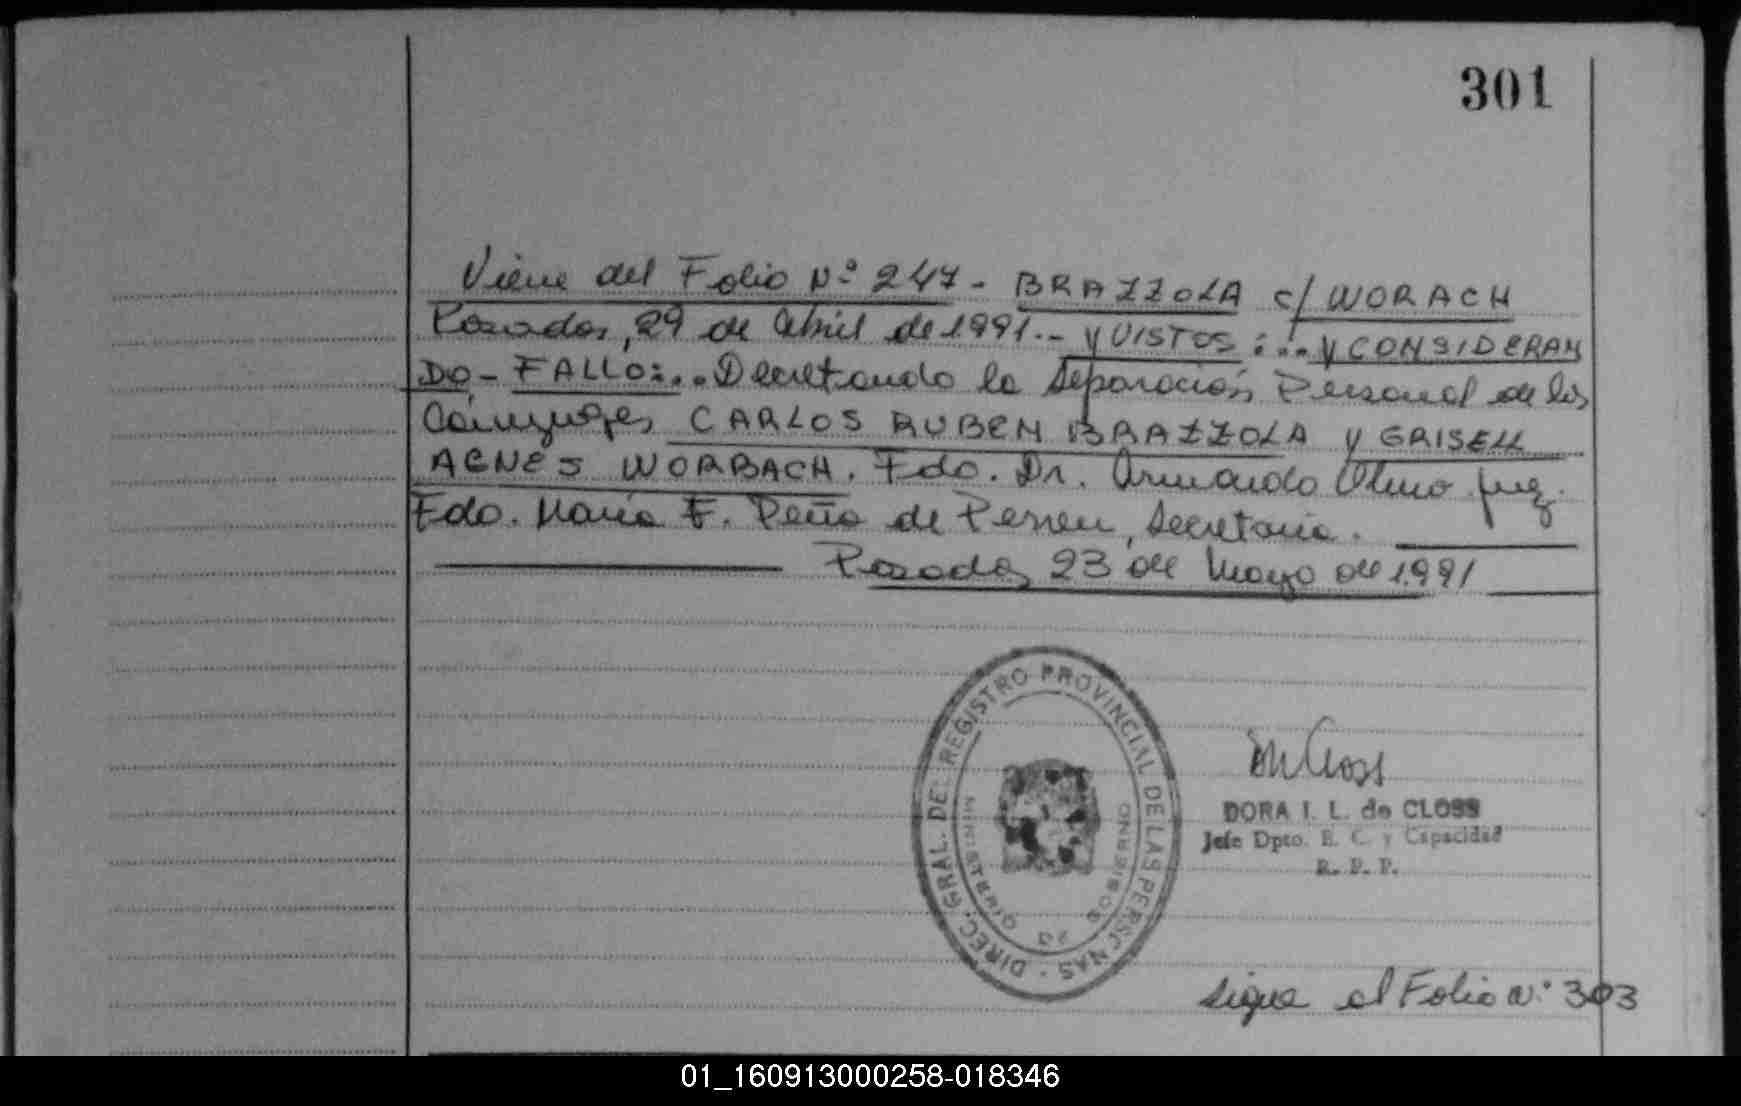 301
Viene del Folio Nº 247 - BRAZZOLA c/ WORACH
Posadas, 29 de Abril de 1991.- Y VISTOS:... Y CONSIDERAN
DO- FALLO:... Decretando la Separación Personal de los
Cónyuges CARLOS RUBEN BRAZZOLA y GRISELL
AGNES WORBACH. Fdo. Dr. Armando Olmo Juez.
Fdo. María F. Peña de , Secretaria.
Posadas, 23 de Mayo de 1991
DIREC. GRAL. DEL REGISTRO PROVINCIAL DE LAS PERSONAS
MINISTERIO DE GOBIERNO
DORA I. L. de CLOSS
Jefe Dpto. E. C. y Capacidad
R. P. P.
Sigue al Folio Nº 303
01_160913000258-018346